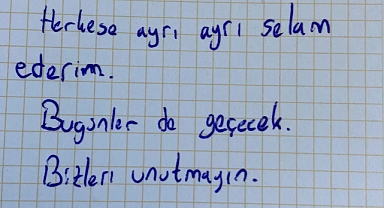 Herkese ayrı ayrı selam
ederim.
Bugünler de geçecek.
Bizleri unutmayın.